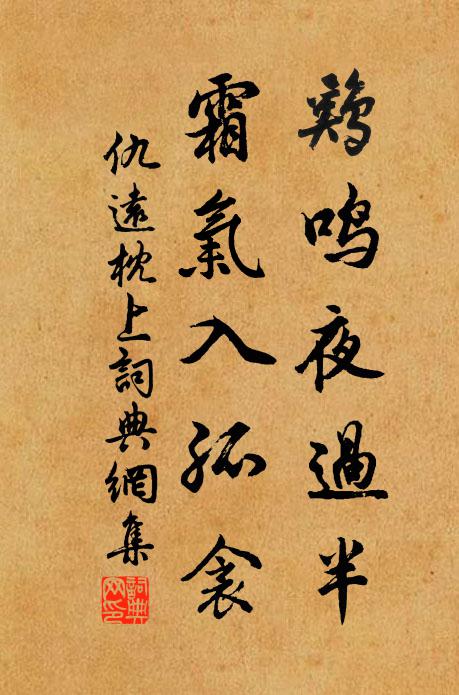 鷄鳴夜過半
霜氣入孤衾
仇遠枕上詞典網集
詞典网印